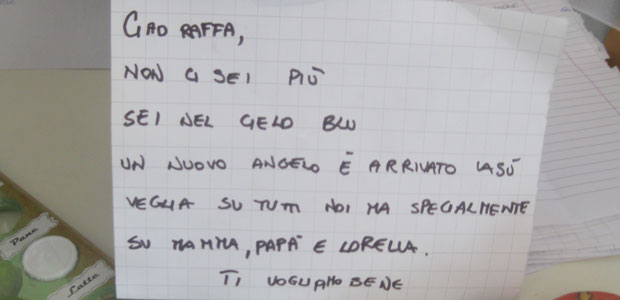 CIAO RAFFA,
NON CI SEI PIÙ
SEI NEL CIELO BLU
UN NUOVO ANGELO È ARRIVATO LASÙ
VEGLIA SU TUTTI NOI MA SPECIALMENTE
SU MAMMA, PAPÀ E LORELLA.
TI VOGLIAMO BENE
Pane
Latte